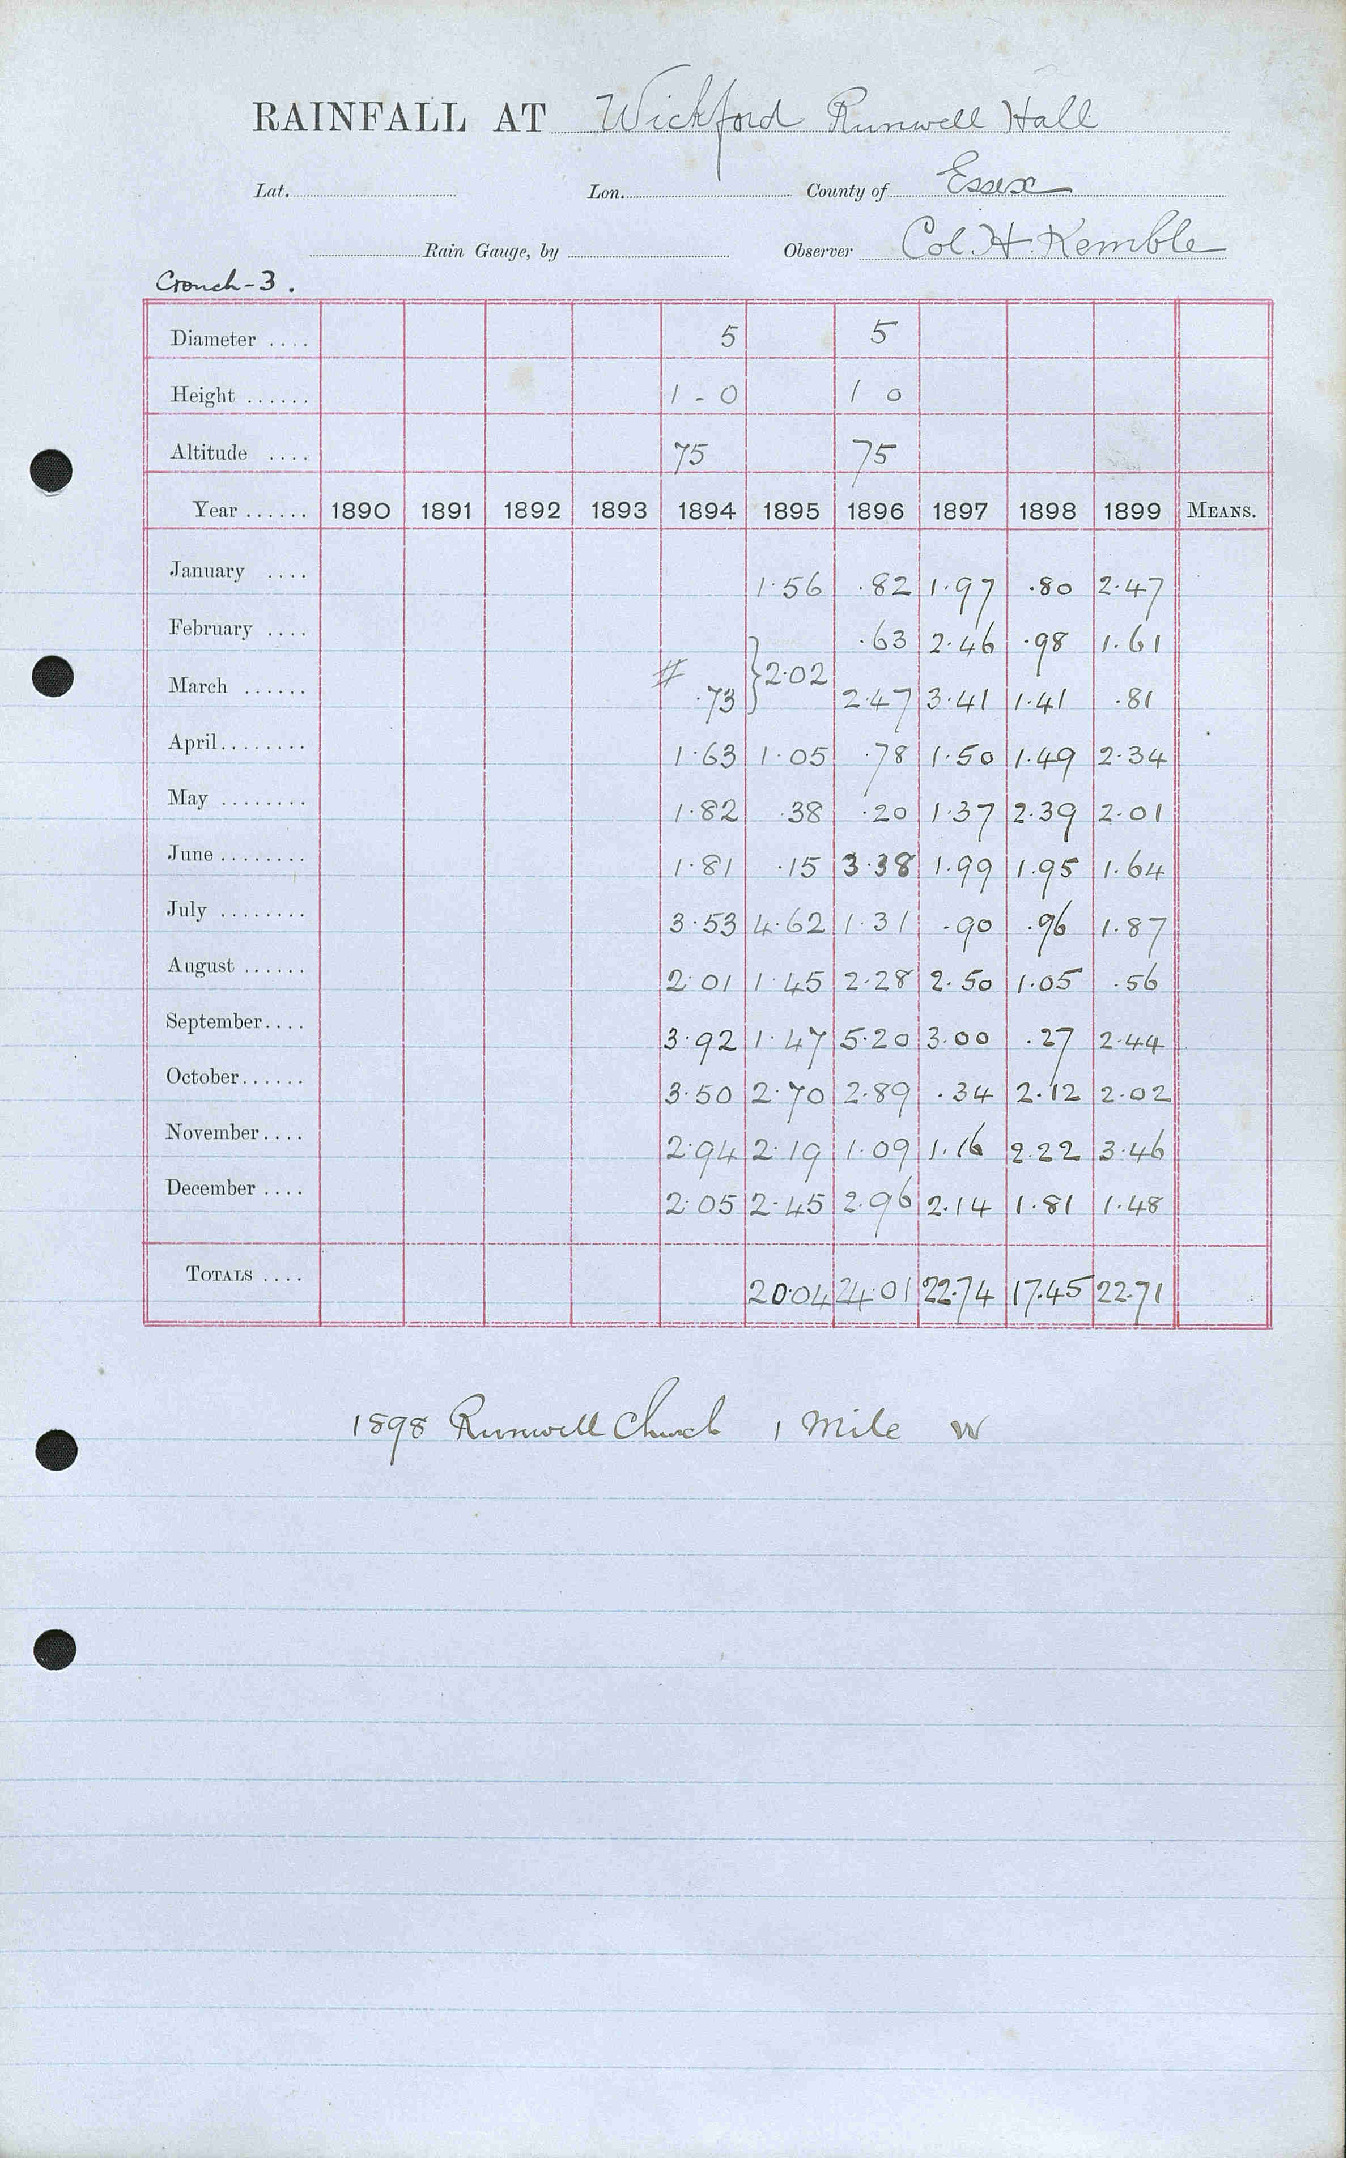 RAINFALL AT Wickford Runwell Hall
Lat. Lon. County of Essex
Rain Gauge, by Observer Col. H. Kemble
Crouch-3.
Diameter .... 5 5
Height ...... 1 - 0 1 0
Altitude .... 75 75
Year ...... 1890 1891 1892 1893 1894 1895 1896 1897 1898 1899 MEANS.
January .... 1.56 .82 1.97 .80 2.47
February .... .63 2.46 .98 1.61
March ...... # .73 } 2.02 2.47 3.41 1.41 .81
April........ 1.63 1.05 .78 1.50 1.49 2.34
May ........ 1.82 .38 .20 1.37 2.39 2.01
June ........ 1.81 .15 3.38 1.99 1.95 1.64
July ........ 3.53 4.62 1.31 .90 .96 1.87
August ...... 2.01 1.45 2.28 2.50 1.05 .56
September.... 3.92 1.47 5.20 3.00 .27 2.44
October...... 3.50 2.70 2.89 .34 2.12 2.02
November.... 2.94 2.19 1.09 1.16 2.22 3.46
December .... 2.05 2.45 2.96 2.14 1.81 1.48
TOTALS .... 20.04 24.01 22.74 17.45 22.71
1898 Runwell Church 1 Mile W